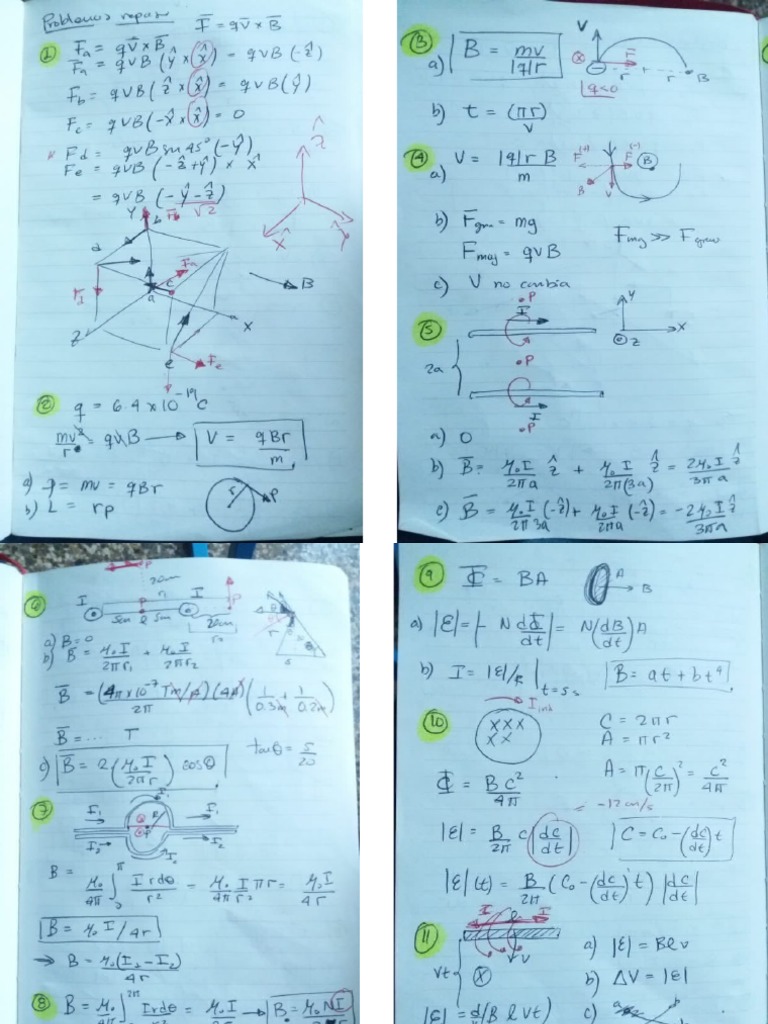 Problemas repaso
F̄ = qv̄ × B̄
① F̄a = qv̄ × B̄
F̄a = qvB (ŷ × x̂) = qvB (-ẑ)
Fb = qvB (ẑ × x̂) = qvB (ŷ)
Fc = qvB (-x̂ × x̂) = 0
Fd = qvB sin 45° (-ŷ)
Fe = qvB (-ẑ + ŷ) × x̂
= qvB (-ŷ - ẑ)
√2
ẑ
x̂ ŷ
Y b
d
Fa
c
a
B
Fd
X
Z
e
Fe
② q = 6.4 × 10⁻¹⁹ C
mv²/r = qvB → V = qBr/m
a) p = mv = qBr
b) L = rp
r P
③ a) B = mv/|q|r
V
F̄
r r B
q<0
b) t = (πr)/v
④ a) V = |q| r B/m
F(+) F(-) B
B V
b) F̄grav = mg
Fmag = qvB
Fmag >> Fgrav
c) V no cambia
⑤ •P
I
Y
X
Z
•P
2a
I
•P
a) 0
b) B̄ = μ₀I/2πa ẑ + μ₀I/2π(3a) ẑ = 2μ₀I/3πa ẑ
c) B̄ = μ₀I/2π3a (-ẑ) + μ₀I/2πa (-ẑ) = -2μ₀I/3πa ẑ
⑥ P
20cm
I r₁ I P
5cm 5cm 20cm
r₂
a) B = 0
b) B̄ = μ₀I/2πr₁ + μ₀I/2πr₂
B̄ = (4π×10⁻⁷ Tm/A)(4A)/2π (1/0.3m + 1/0.2m)
B̄ = .... T
tanθ = 5/20
c) B̄ = 2(μ₀I/2πr) cosθ
⑦ I₁ I₁ I₁
I₂ I₂ I₂
B = μ₀/4π ∫₀^π Irdθ/r² = μ₀I/4πr² πr = μ₀I/4r
B = μ₀I/4r
→ B = μ₀(I₁-I₂)/4r
⑧ B = μ₀ ∫₀^2π Irdθ = μ₀I → B = μ₀NI
⑨ Φ = BA
A
B
a) |ε| = |- N dΦ/dt| = N(dB/dt)A
b) I = |ε|/R | t=5s
B = at + bt⁴
⑩ Iind
xxx
xx
C = 2πr
A = πr²
A = π(C/2π)² = C²/4π
Φ = BC²/4π
= -12 cm/s
|ε| = B/2π C |dC/dt|
C = C₀ - (dC/dt)t
|ε|(t) = B/2π (C₀ - (dC/dt)t) |dC/dt|
⑪ I I
v
vt
a) |ε| = Blv
b) ΔV = |ε|
|ε| = d(B l vt)
c) a b